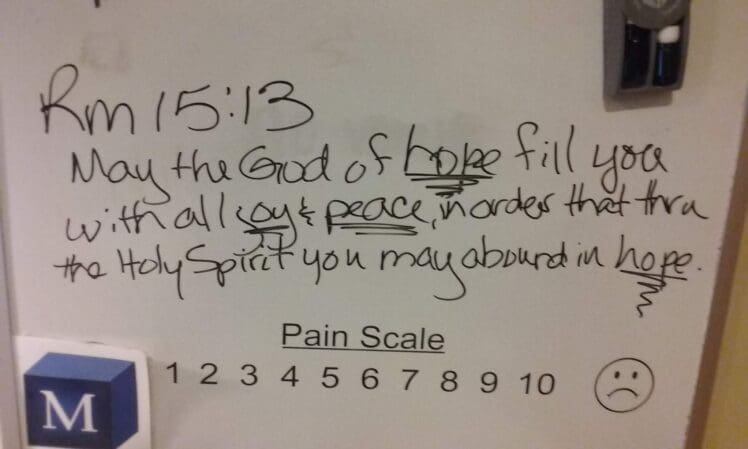 Rm 15:13
May the God of hope fill you
with all joy & peace, in order that thru
the Holy Spirit you may abound in hope.
Pain Scale
1 2 3 4 5 6 7 8 9 10
M